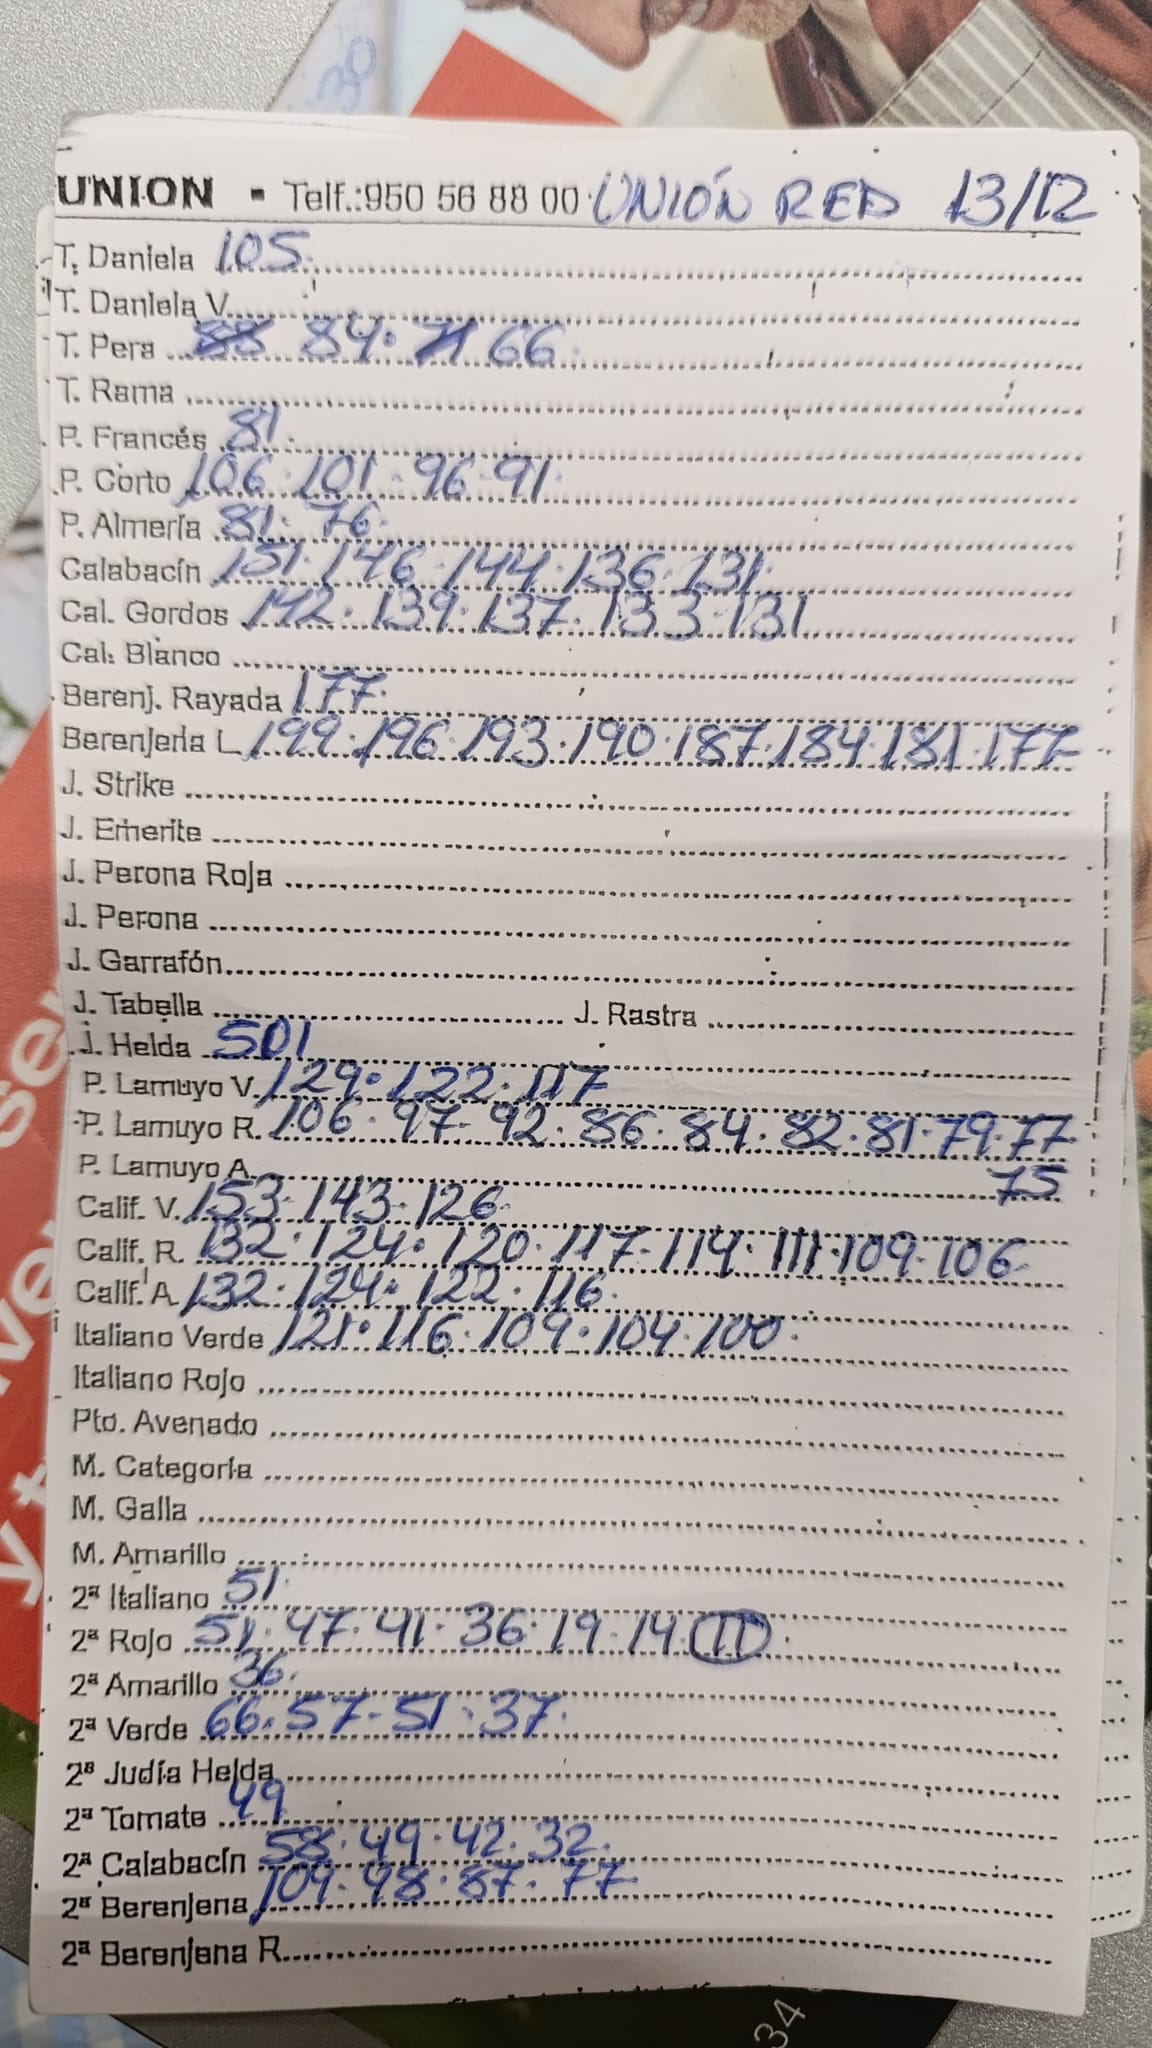 UNION - Telf.:950 56 88 00 UNIÓN RED 13/12
T. Daniela 105
T. Daniela V.
T. Pera 88 84 · 71 66
T. Rama
P. Francés 81
P. Corto 106 · 101 · 96 · 91
P. Almería 81 · 76
Calabacín 151 · 146 · 144 · 136 · 131
Cal. Gordos 142 · 139 · 137 · 133 · 131
Cal. Blanco
Berenj. Rayada 177
Berenjena L. 199 · 196 · 193 · 190 · 187 · 184 · 181 · 177
J. Strike
J. Emerite
J. Perona Roja
J. Perona
J. Garrafón
J. Tabella J. Rastra
J. Helda 501
P. Lamuyo V. 129 · 122 · 117
P. Lamuyo R. 106 · 97 · 92 · 86 · 84 · 82 · 81 · 79 · 77
P. Lamuyo A. 75
Calif. V. 153 · 143 · 126
Calif. R. 132 · 124 · 120 · 117 · 114 · 111 · 109 · 106
Calif. A. 132 · 124 · 122 · 116
Italiano Verde 121 · 116 · 109 · 104 · 100
Italiano Rojo
Pto. Avenado
M. Categoría
M. Galia
M. Amarillo
2ª Italiano 51
2ª Rojo 51 · 47 · 41 · 36 · 19 · 14 · 11
2ª Amarillo 36
2ª Verde 66 · 57 · 51 · 37
2ª Judía Helda
2ª Tomate 49
2ª Calabacín 58 · 49 · 42 · 32
2ª Berenjena 109 · 98 · 87 · 77
2ª Berenjena R.
34